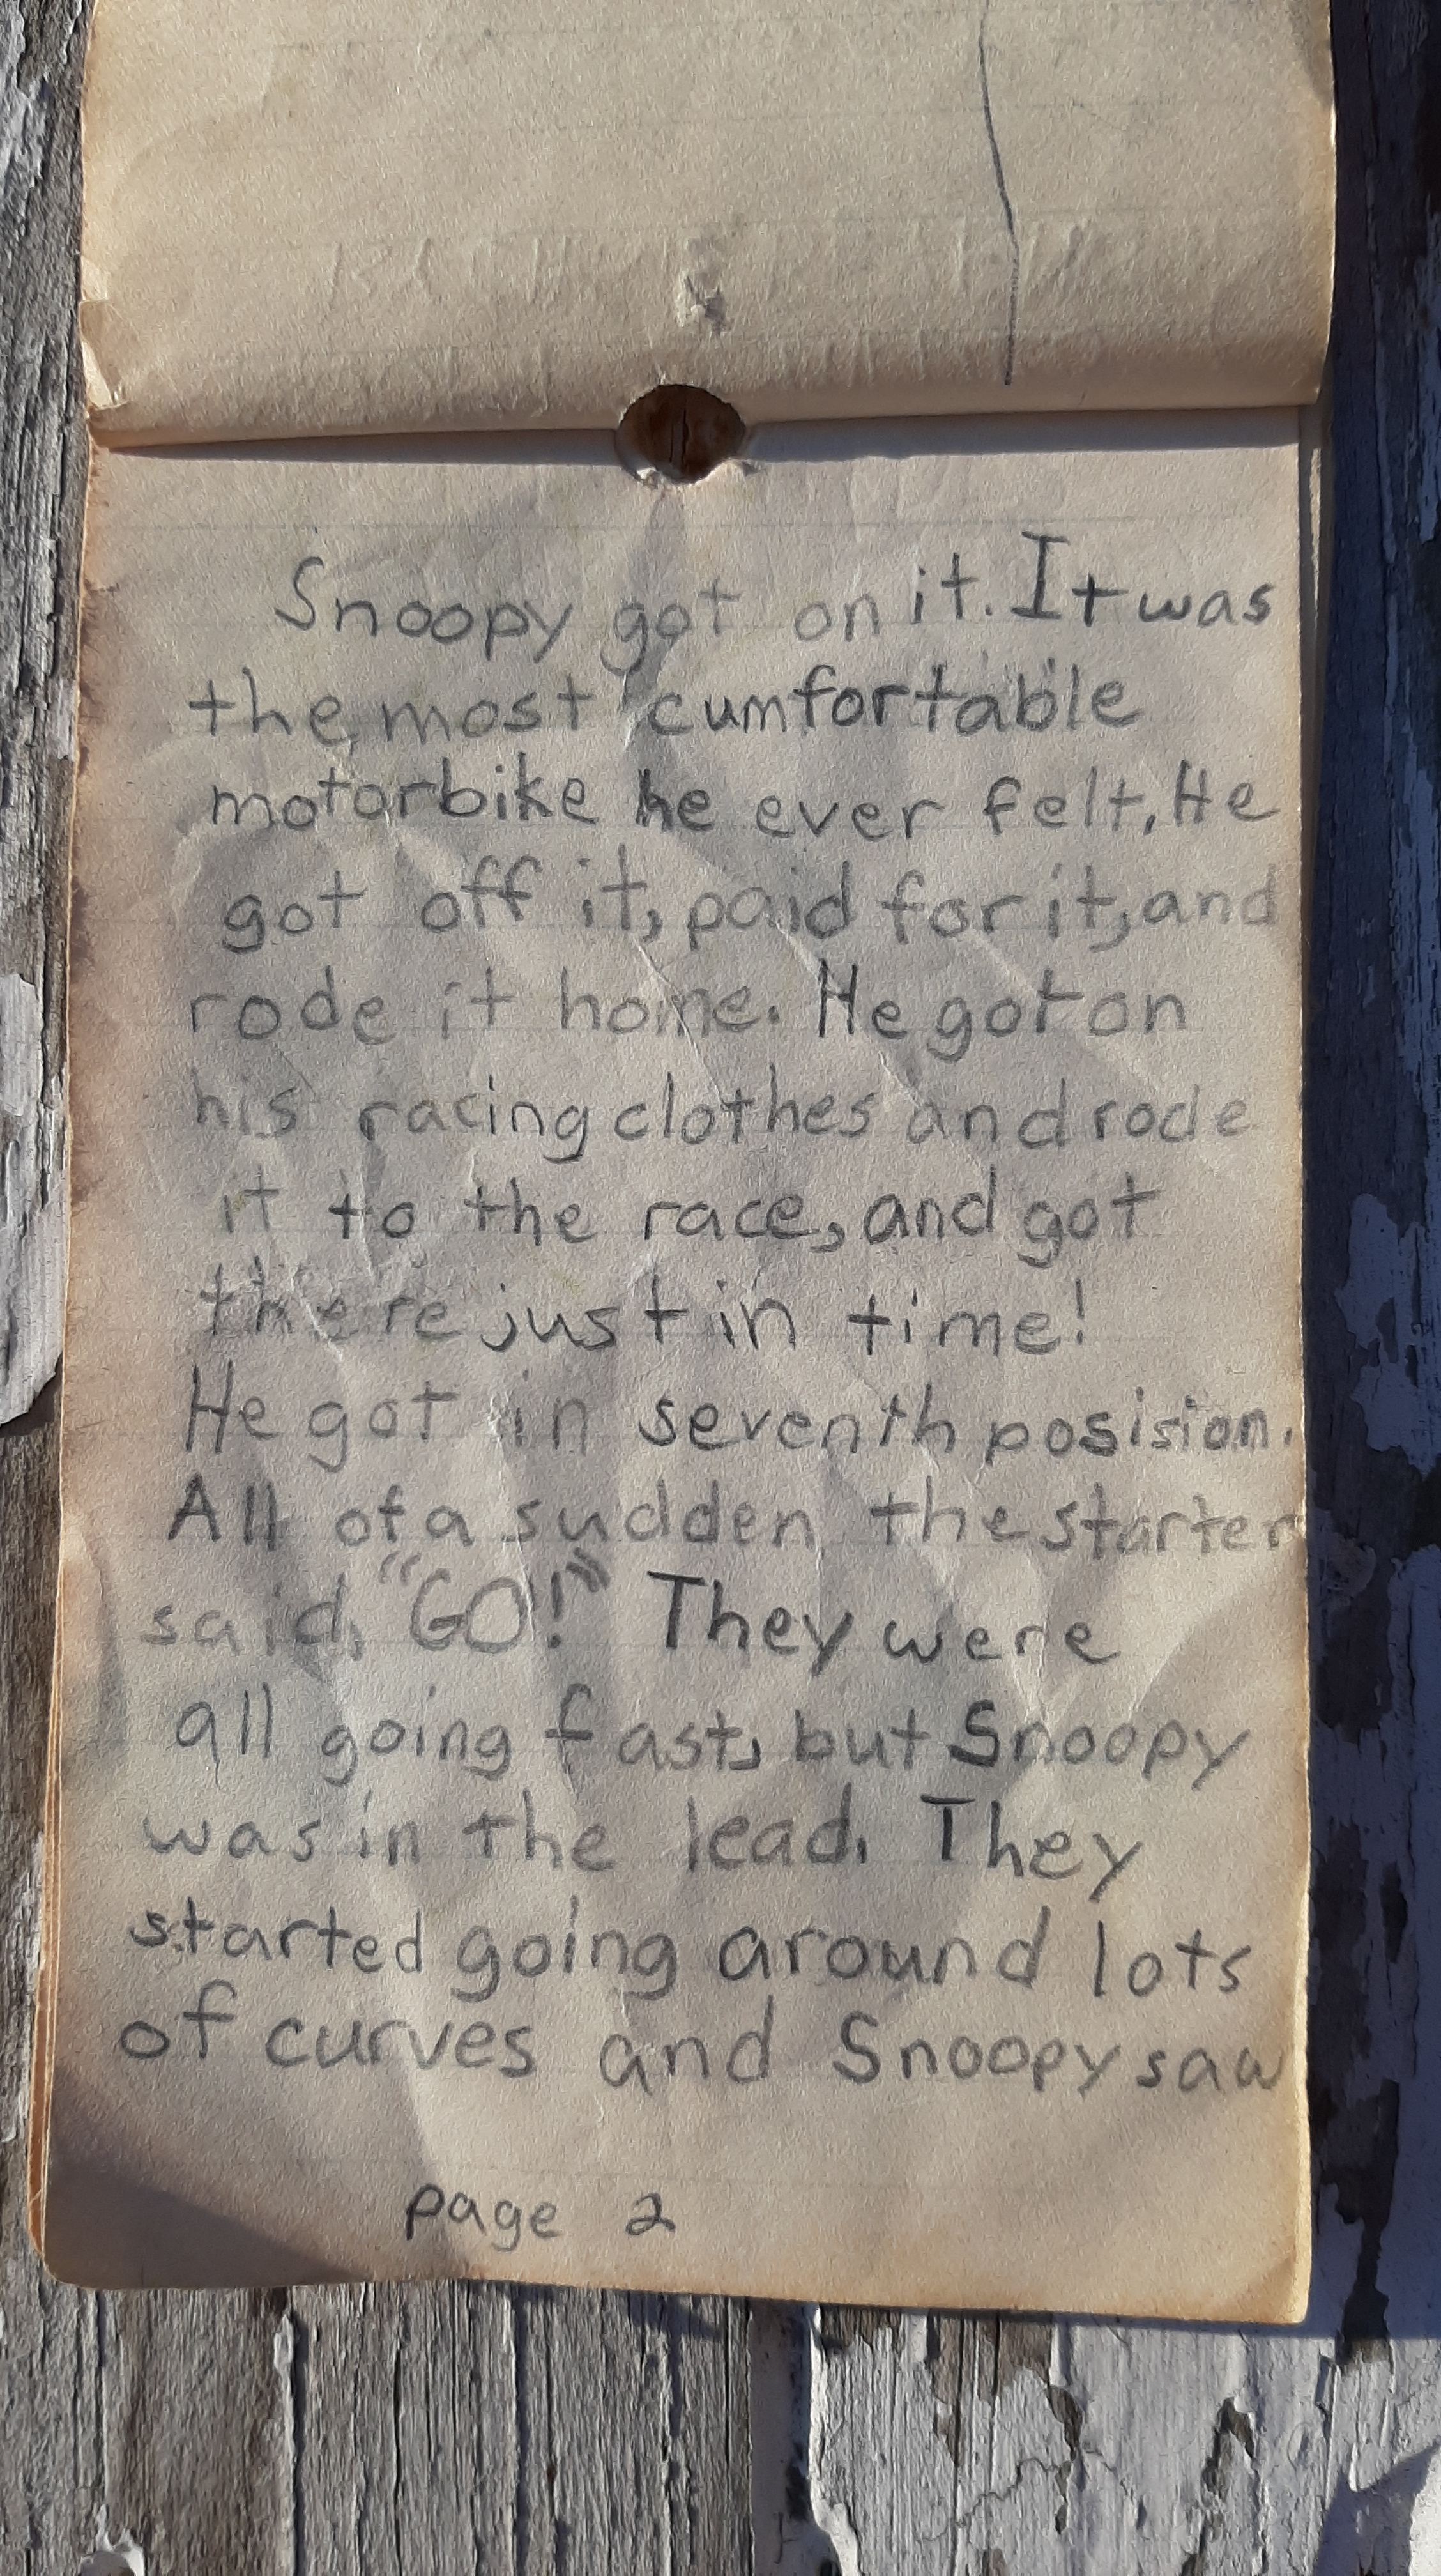 Snoopy got on it. It was
the most cumfortable
motorbike he ever felt. He
got off it, paid for it, and
rode it home. He got on
his racing clothes and rode
it to the race, and got
there just in time!
He got in seventh posision.
All of a sudden the starter
said, "GO!" They were
all going fast, but Snoopy
was in the lead. They
started going around lots
of curves and Snoopy saw
page 2